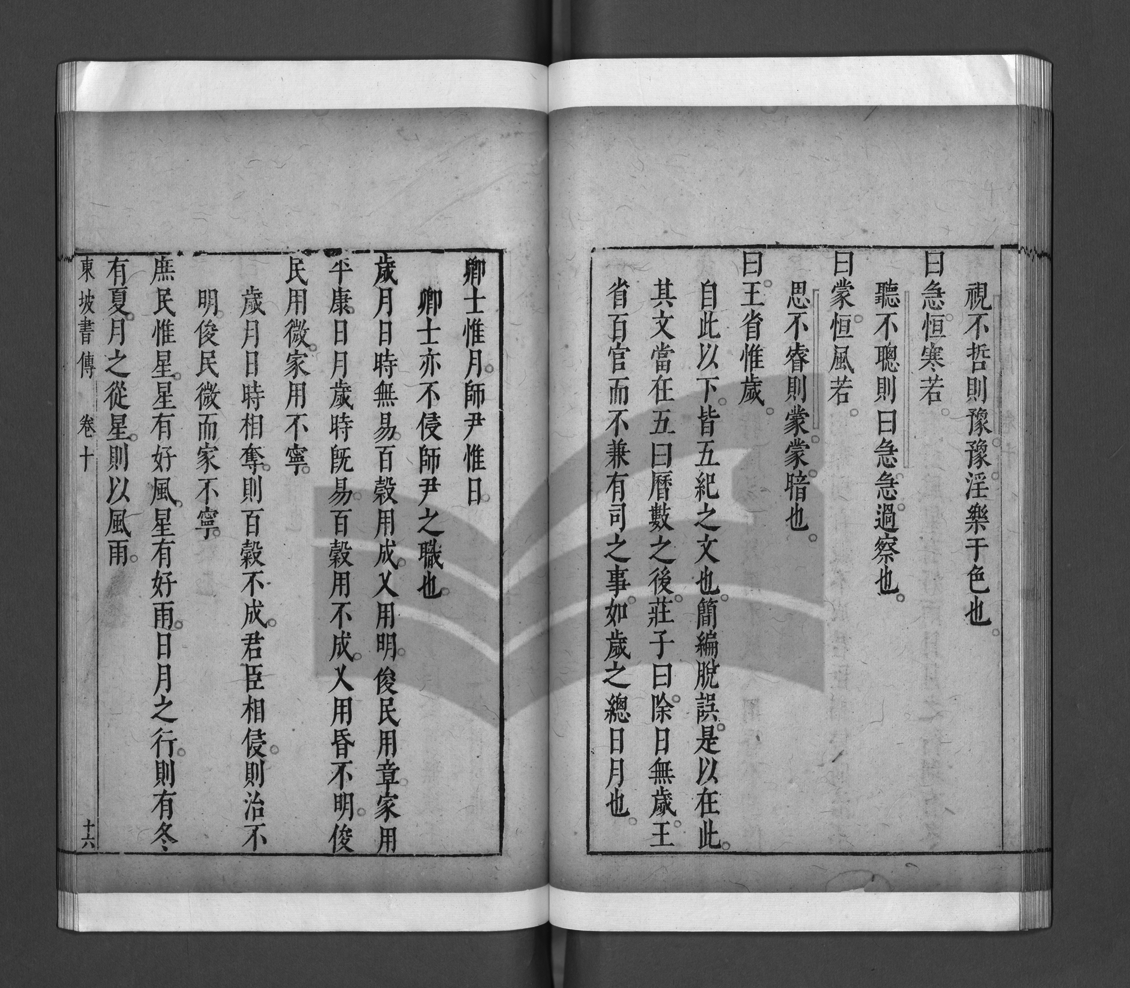 視不哲則豫豫淫樂于色也
曰急恒寒若
聽不聰則曰急急過察也
曰蒙恒風若
思不睿則蒙蒙暗也
曰王省惟歲
自此以下皆五紀之文也簡編脫誤是以在此
其文當在五曰曆數之後莊子曰除日無歲王
省百官而不兼有司之事如歲之總日月也
卿士惟月師尹惟日
卿士亦不侵師尹之職也
歲月日時無易百穀用成乂用明俊民用章家用
平康日月歲時旣易百穀用不成乂用昏不明俊
民用微家用不寧
歲月日時相奪則百穀不成君臣相侵則治不
明俊民微而家不寧
庶民惟星星有好風星有好雨日月之行則有冬
有夏月之從星則以風雨
東坡書傳 卷十 十六